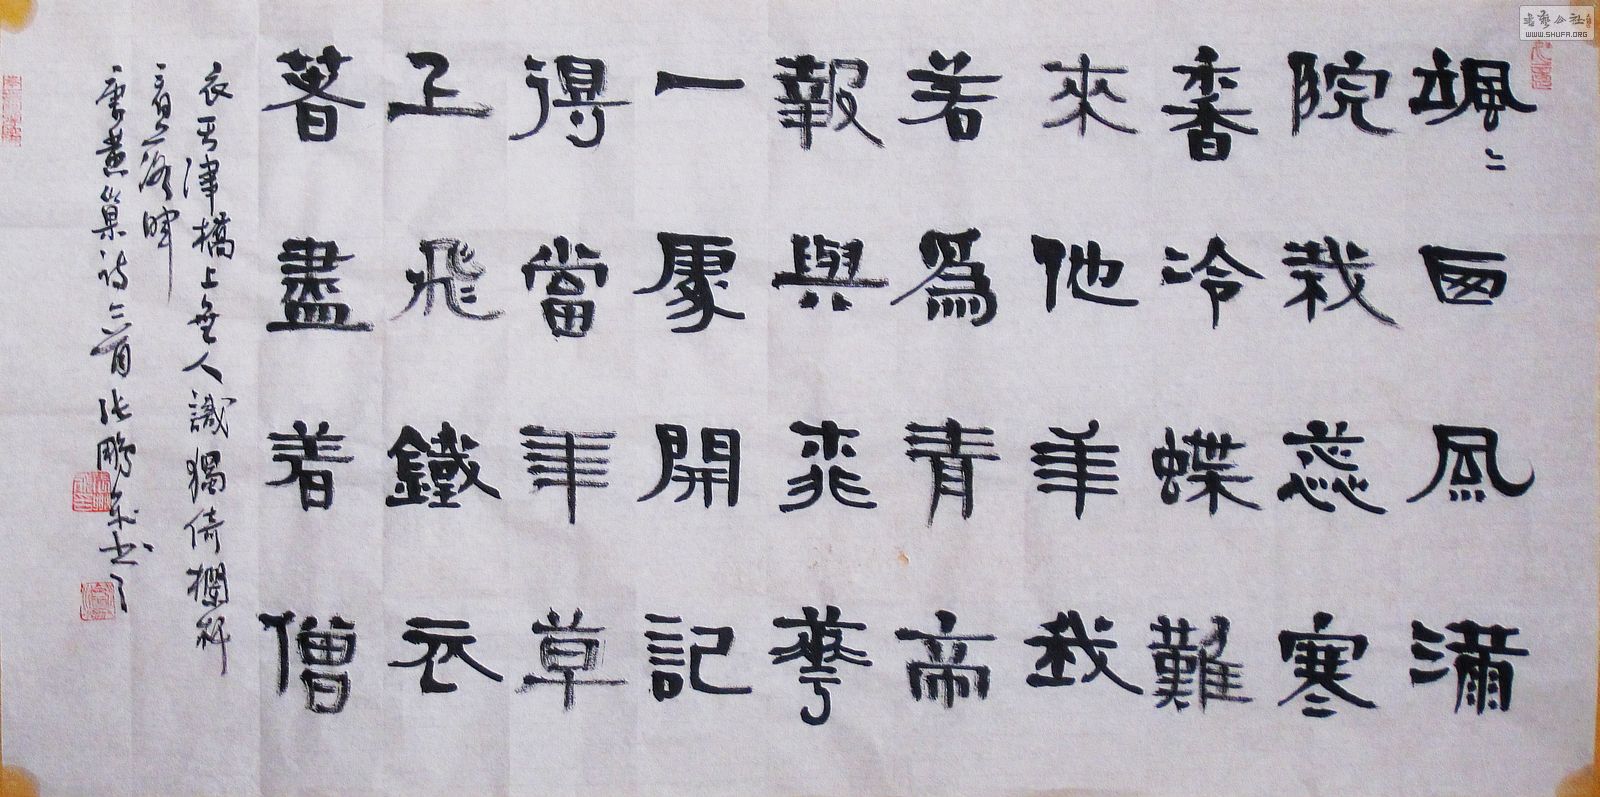 颯〻西風滿
院栽蕊寒
香冷蝶難
來他年我
若爲青帝
報與桃華
一處開記
得當年草
上飛鐵衣
著盡着僧
衣天津橋上無人識獨倚欄杆
看落暉
唐黃巢詩二首張鵬書
WWW.SHUFA.ORG